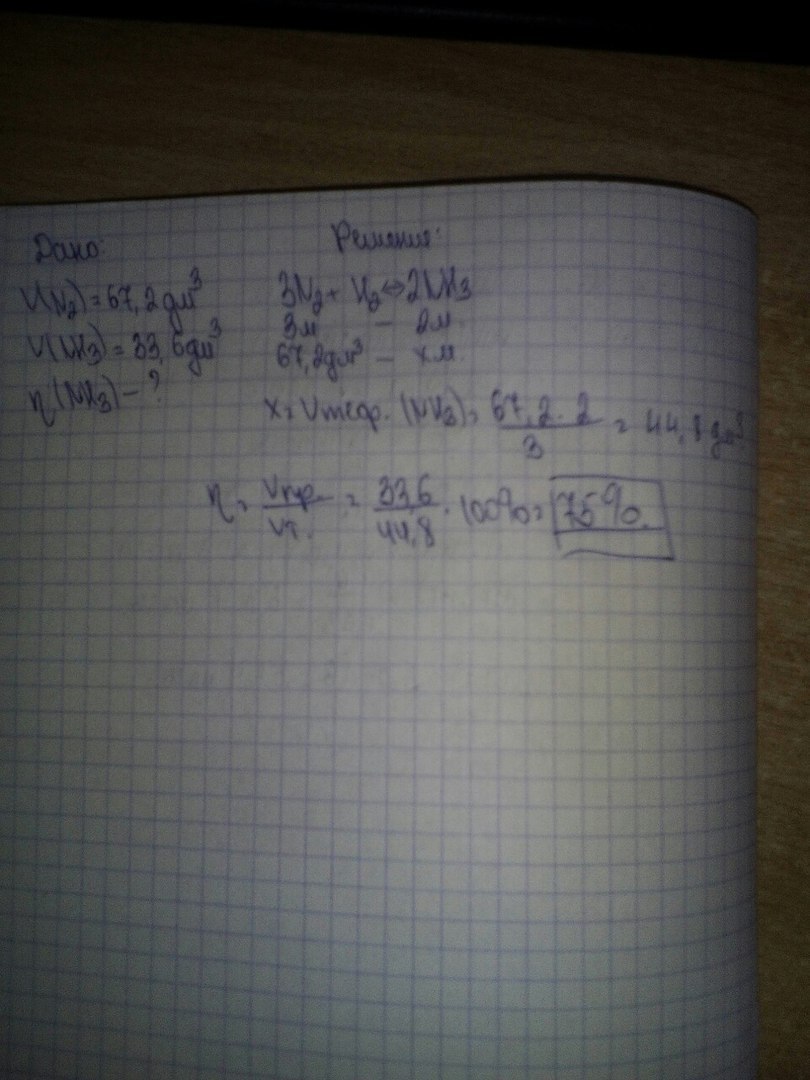 Дано:
V(N2)=67,2 дм³
V(NH3)=33,6дм³
η(NH3)-?
Решение:
3N2+H2⇔2NH3
3м - 2м
67,2дм³ - хм.
x=Vтеор.(NH3)=67,2·2/3=44,8 дм³
η=Vпр./Vт.=33,6/44,8·100%=75%.